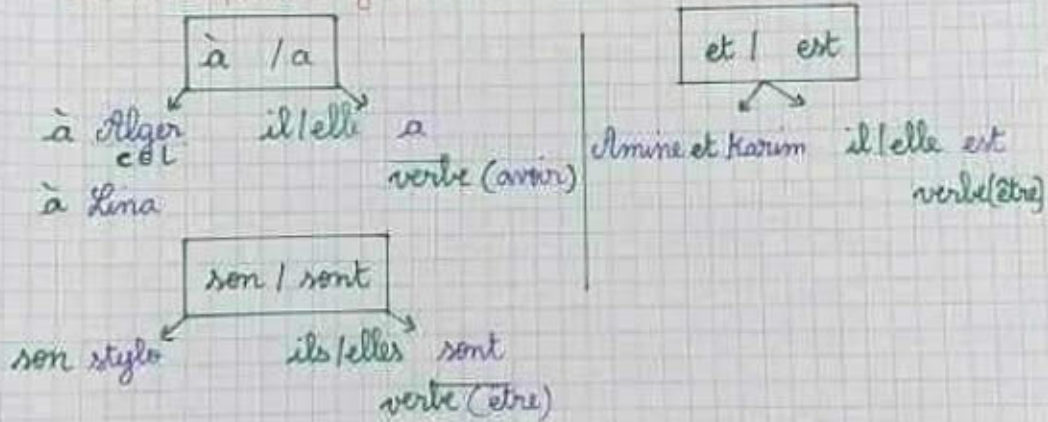 à / a
à Alger il/elle a
CCL
verbe (avoir)
à Lina
et / est
Amine et Karim il/elle est
verbe (être)
son / sont
son stylo ils/elles sont
verbe (être)